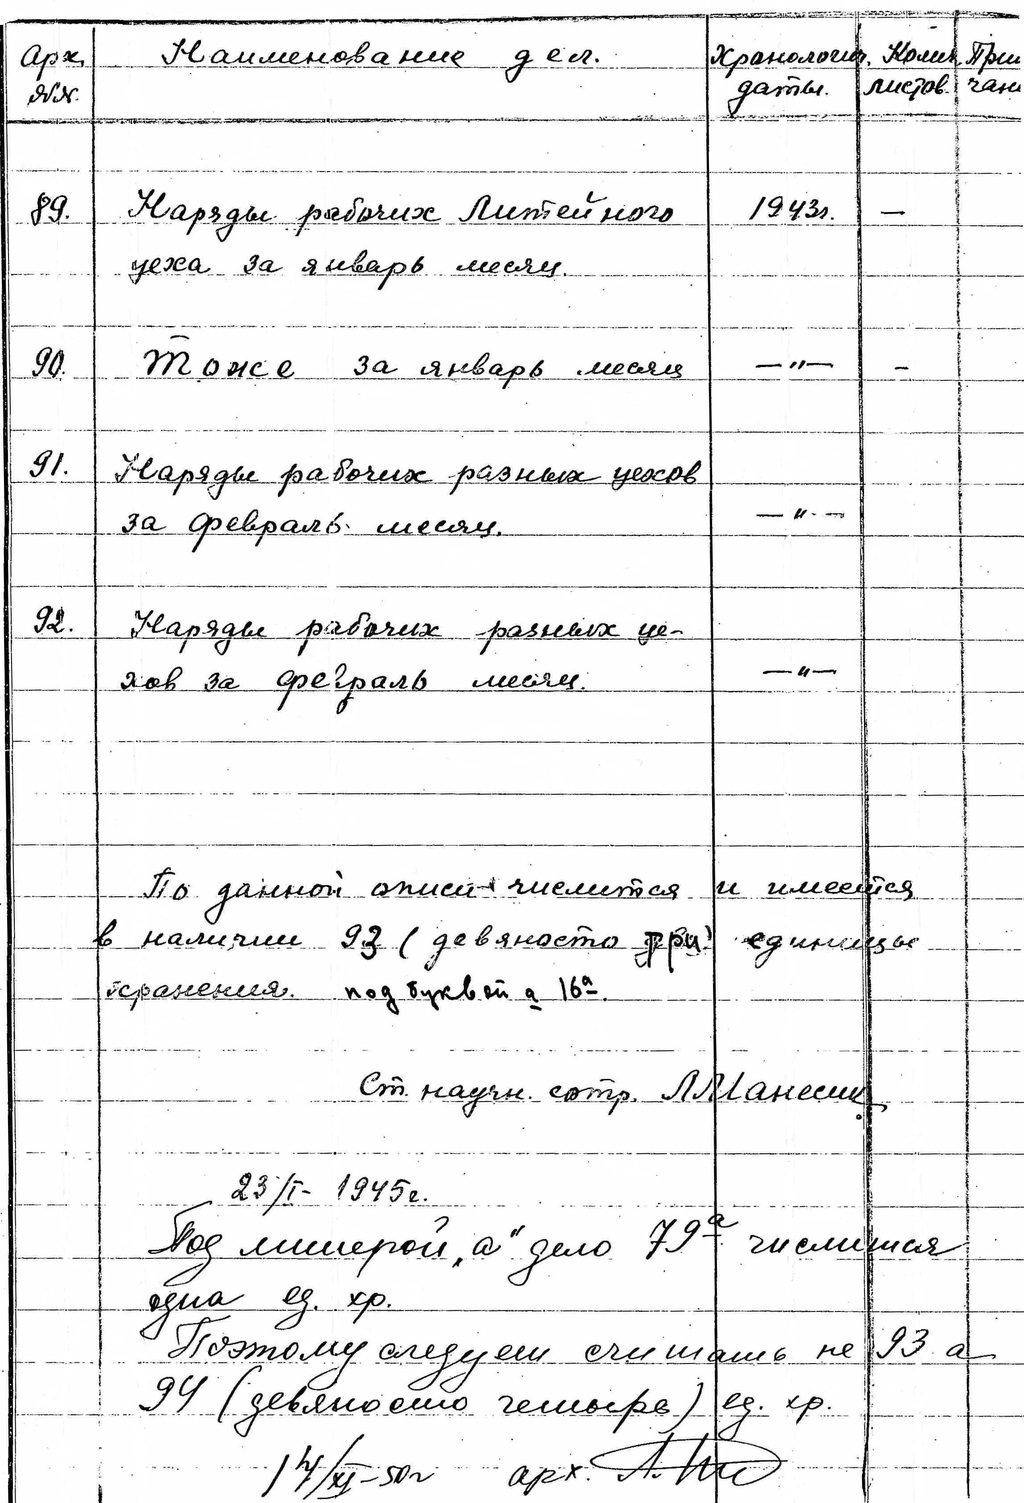 Арх. Наименование дел. Хронологич. Колич. При
№№. даты. листов. чани
89. Наряды рабочих Литейного 1943г. —
цеха за январь месяц.
90. Тоже за январь месяц —"— –
91. Наряды рабочих разных цехов
за февраль месяц. —"—
92. Наряды рабочих разных це-
хов за февраль месяц. —"—
По данной описи числится и имеется
в наличии 93 (девяносто три) единицы
хранения. под буквой а 16а.
Ст. научн. сотр.
23/I- 1945г.
Под литерой „а" дело 79а числится
одна ед. хр.
Поэтому следует считать не 93 а
94 (девяносто четыре) ед. хр.
17/XI-50г арх.